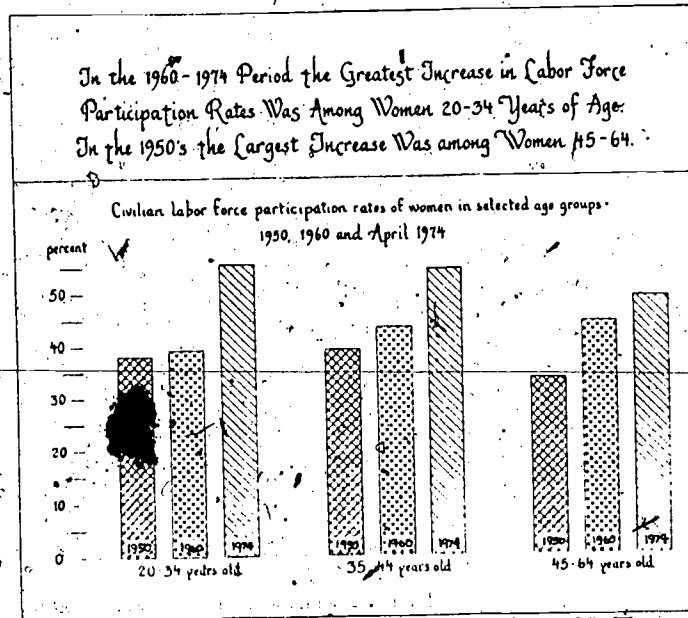 In the 1960-1974 Period the Greatest Increase in Labor Force
Participation Rates Was Among Women 20-34 Years of Age.
In the 1950's the Largest Increase Was among Women 45-64.
Civilian labor force participation rates of women in selected age groups.
1950, 1960 and April 1974
percent
50
40
30
20
10
0
1950 1960 1974 1950 1960 1974 1950 1960 1974
20-34 years old 35-44 years old 45-64 years old